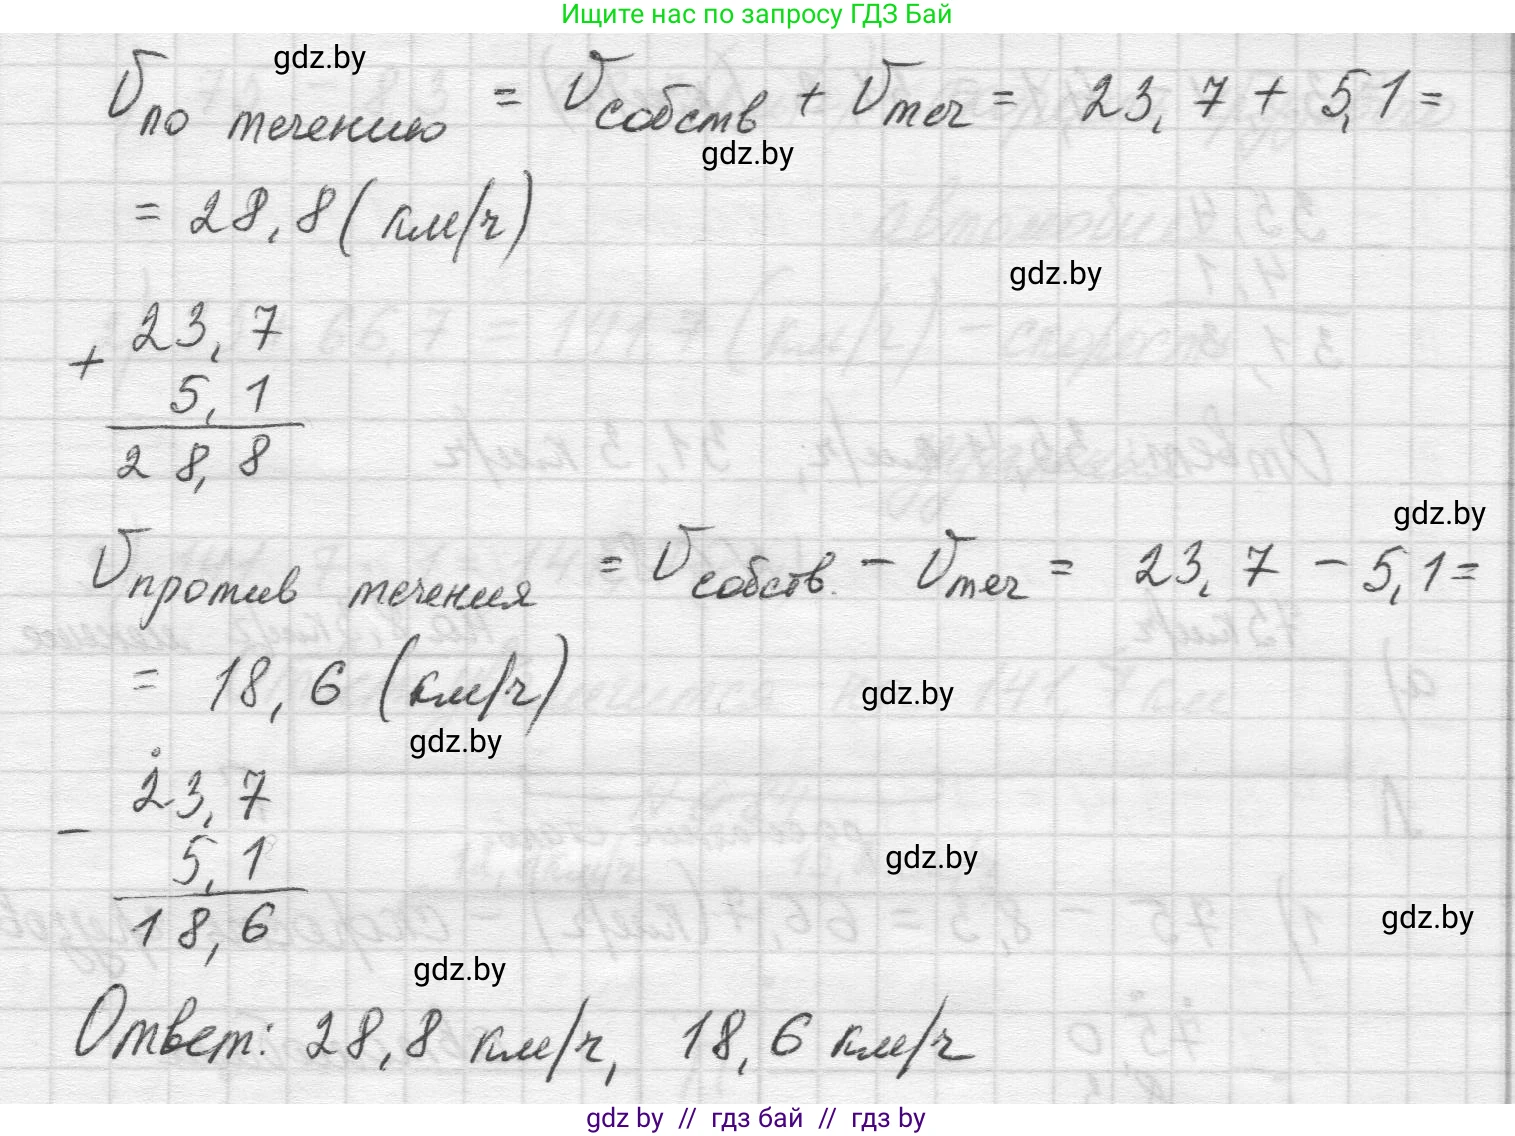 Ищите нас по запросу ГДЗ Бай
gdz.by
V по течению = V собств + V теч = 23,7 + 5,1 =
gdz.by
= 28,8 (км/ч)
gdz.by
23,7
+
5,1
28,8
gdz.by
V против течения = V собств. - V теч = 23,7 - 5,1 =
= 18,6 (км/ч)
gdz.by
gdz.by
23,7
-
5,1
gdz.by
18,6
gdz.by
gdz.by
Ответ: 28,8 км/ч, 18,6 км/ч
gdz by // гдз бай // гдз by